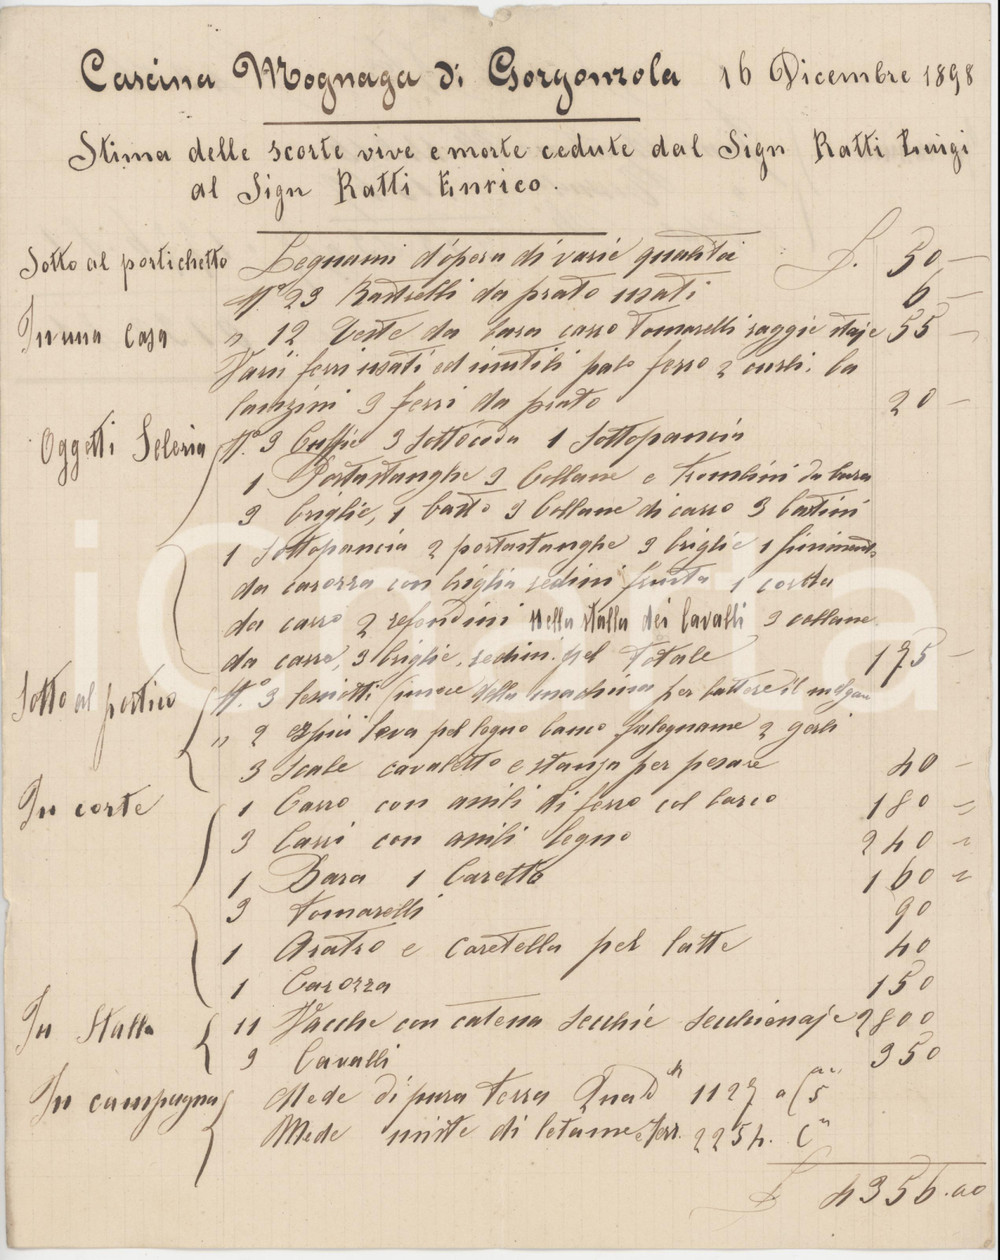 Cascina Mognaga di Gorgonzola 16 Dicembre 1898
Stima delle scorte vive e morte cedute dal Sign Ratti Luigi
al Sign Ratti Enrico.
Sotto al portichetto Legnami d'opera di varie qualità £. 50 —
N.° 23 Rastrelli da prato usati 6 —
In una Casa " 12 Teste da bara carro Tomarelli raggie 55 —
Varii ferri usati ed inutili palo ferro 2 la
3 ferri da prato 20 —
Oggetti Seleria N.° 3 Cuffie 3 Sottocoda 1 Sottopancia
1 Portastanghe 3 Collane e Rombini da bara
3 briglie, 1 basto 3 Collane di carro 3 bastini
1 Sottopancia 2 portastanghe 3 briglie 1 finimento
da carozza con briglia redini frusta 1
da carro 2 Nella stalla dei Cavalli 3 collane
da carro, 3 briglie, redini. pel Totale 175 —
Sotto al portico N.° 3 della machina per battere il
" 2 leva pel legno banco falegname 2 gerli
3 Scale cavaletto e stanza per pesare 40 —
In corte 1 Carro con assili di ferro col barco 180 "
3 Carri con assili legno 240 "
1 Bara 1 Caretto 160 "
3 Tomarelli 90
1 Aratro e caretella pel latte 40
1 Carozza 150
In Stalla 11 Vacche con catena Secchie 2800
3 Cavalli 350
In campagna Mede di pura terra Quad 1127 a 5
Mede miste di letame e terr. 2254. C
£ 4356.00
iCharta